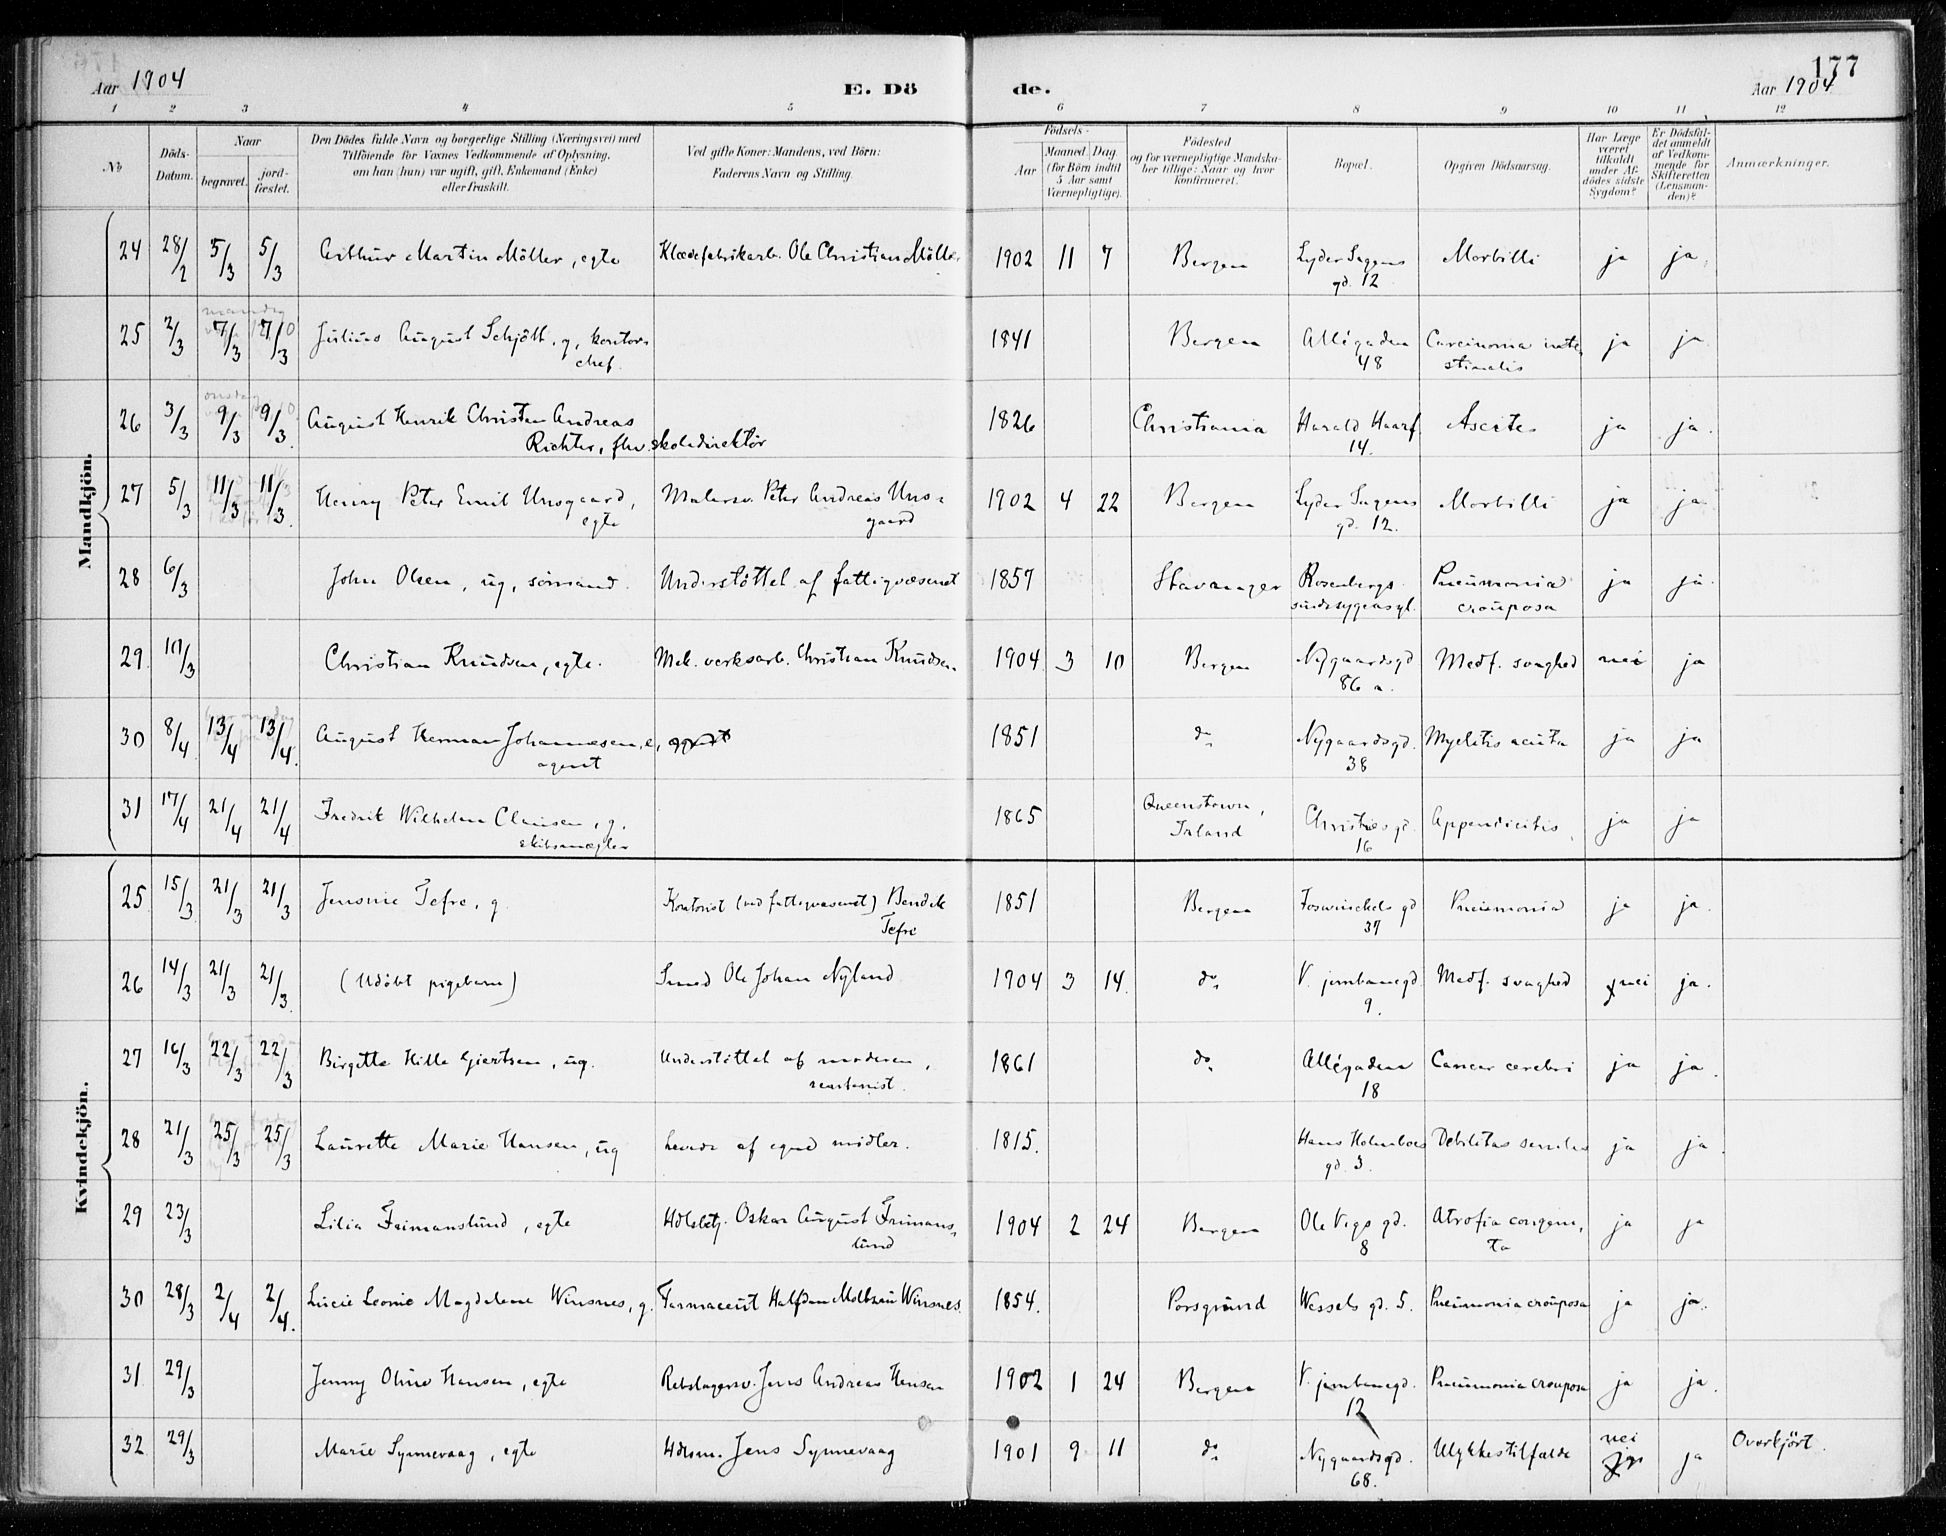 177
Aar 1904 E. Dö de. Aar 1904
1 2 3 4 5 6 7 8 9 10 11 12
No
Döds-Datum.
Naar
begravet.
jord-fæstet.
Den Dödes fulde Navn og borgerlige Stilling (Næringsvei) med
Tilföiende for Voxnes Vedkommende af Oplysning,
om han (hun) var ugift, gift, Enkemand (Enke)
eller fraskilt.
Ved gifte Koner: Mandens, ved Börn:
Faderens Navn og Stilling.
Födsels-
Aar
Maaned. Dag.
(for Börn indtil
5 Aar samt
Værnepligtige).
Födested
og for værnepligtige Mandska-
ber tillige: Naar og hvor
konfirmeret.
Bopæl.
Opgiven Dödsaarsag.
Har Læge
været
tilkaldt
under Af-
dödes sidste
Sygdom?
Er Dödsfal-
det anmeldt
af Vedkom-
mende for
Skifteretten
(Lensman-
den)?
Anmærkninger.
Mandkjön.
24 28/2 5/3 5/3 Arthur Martin Möller, egte Klædefabrikarb. Ole Christian Möller 1902 11 7 Bergen Lyder Sagens gd. 12 Morbilli ja ja
25 2/3 mandag 7/3 7/3 Julius August Schjött, g, kontor-
chef. 1841 Bergen Allégaden 48 Carcinoma inte-
stinalis ja ja
26 3/3 onsdag 9/3 9/3 August Henrik Christen Andreas
Richter, fhv. skoledirektør 1826 Christiania Harald Haarf. 14. Ascites ja ja.
27 5/3 11/3 11/3 Henry Peter Emil Unsgaard,
egte Malersv. Peter Andreas Uns-
gaard 1902 4 22 Bergen Lyder Sagens gd. 12. Morbilli ja ja
28 6/3 John Olsen, ug, sömand. Understöttet af fattigvæsenet 1857 Stavanger Rosenbergs
sindssygeasyl. Pneumonia
crouposa ja ja.
29 10/3 Christian Knudsen, egte. Mek. verksarb. Christian Knudsen 1904 3 10 Bergen Nygaardsgd 86 a. Medf. svaghed nei ja
30 8/4 13/4 13/4 August Herman Johannesen, e,
agent 1851 do Nygaardsgd. 38 Myelitis acuta ja ja
31 17/4 21/4 21/4 Fredrik Wilhelm Clausen, g,
skibsmægler 1865 Queenstown,
Irland Christiesgd. 16 Appendicitis ja ja
Kvindekjön.
25 15/3 21/3 21/3 Jensine Tefre, g. Kontorist (ved fattigvæsenet) Bendik
Tefre 1851 Bergen Foswinckels gd 37 Pneumonia ja ja.
26 14/3 21/3 21/3 (Udöbt pigebarn) Smed Ole Johan Nyland 1904 3 14. do V. jernbanegd 9. Medf. svaghed nei ja.
27 16/3 22/3 22/3 Birgitte Hille Gjertsen, ug. Understöttet af moderen, 1861 do Allégaden 18 Cancer cerebri ja ja.
28 21/3 25/3 25/3 Laurette Marie Hansen, ug Levede af egne midler. 1815. Hans Holmboes gd. 3. Debilitas senilis ja ja
29 23/3 Lilia Frimanslund, egte Hdlsbtj. Oskar August Frimans-
lund 1904 2 24 Bergen Ole Vigs gd. 8 Atrofia congeni-
ta ja ja
30 28/3 2/4 2/4. Lucie Leonie Magdalene Winsnes, g. Farmaceut Halfdan Moltzau Winsnes. 1854. Porsgrund Wessels gd. 5. Pneumonia crouposa ja ja.
31 29/3 Jenny Oline Hansen, egte Rebslagersv. Jens Andreas Hansen 1902 1 24 Bergen V. jernbanegd. 12 Pneumonia crouposa ja ja.
32 29/3 Marie Synnevaag, egte Hdlsm. Jens Synnevaag 1901 9 11 do Nygaardsgd. 68. Ulykkestilfælde nei ja Overkjört.